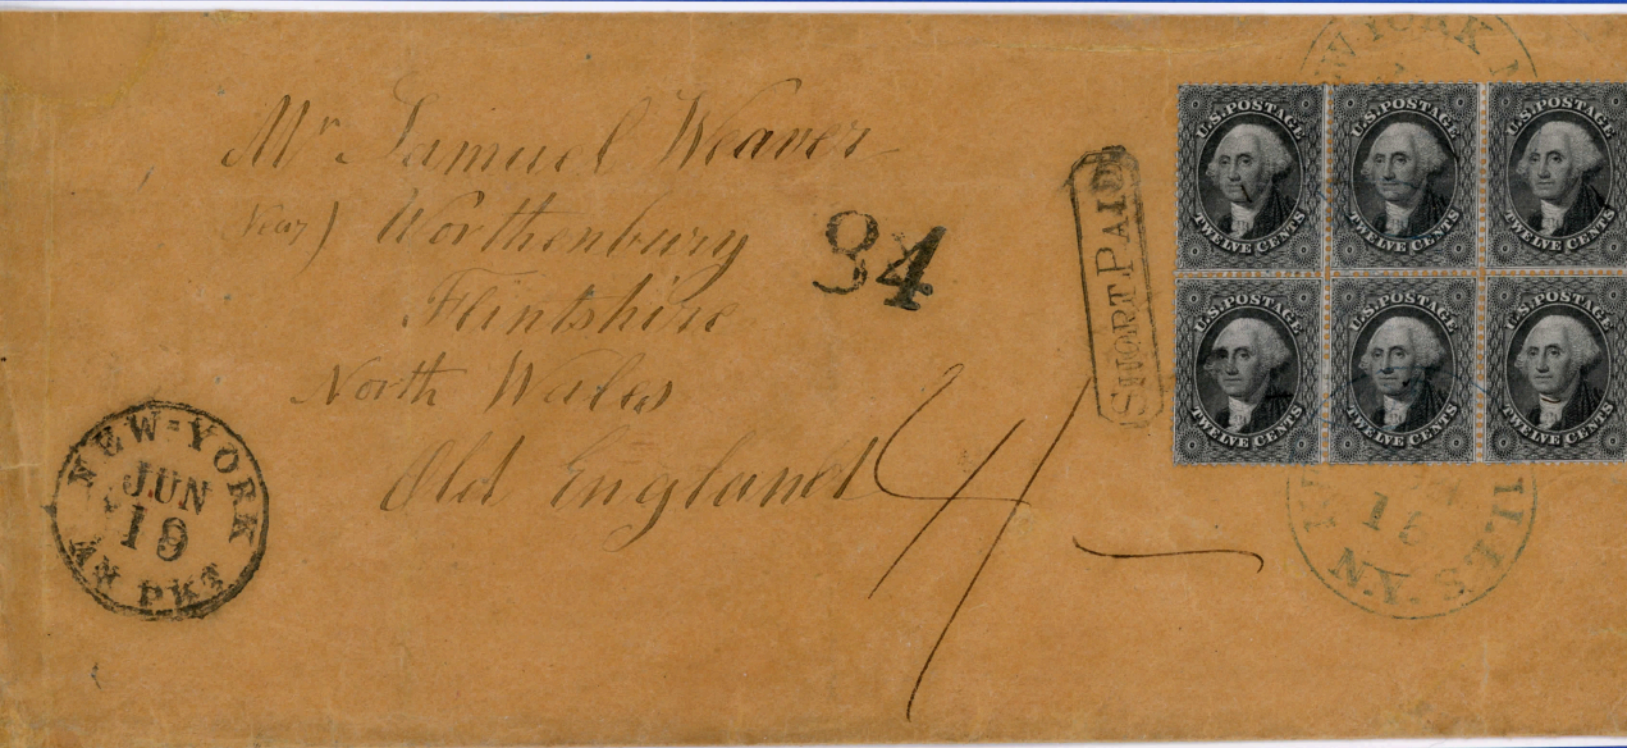 Mr Samuel Weaver
Near) Worthenbury
Flintshire
North Wales
Old England
84
SHORT PAID
4
NEW-YORK
JUN
19
AM PKT
U.S. POSTAGE
TWELVE CENTS
U.S. POSTAGE
TWELVE CENTS
U.S. POSTAGE
TWELVE CENTS
U.S. POSTAGE
TWELVE CENTS
U.S. POSTAGE
TWELVE CENTS
U.S. POSTAGE
TWELVE CENTS
W YORK
15
N.Y. S.T.